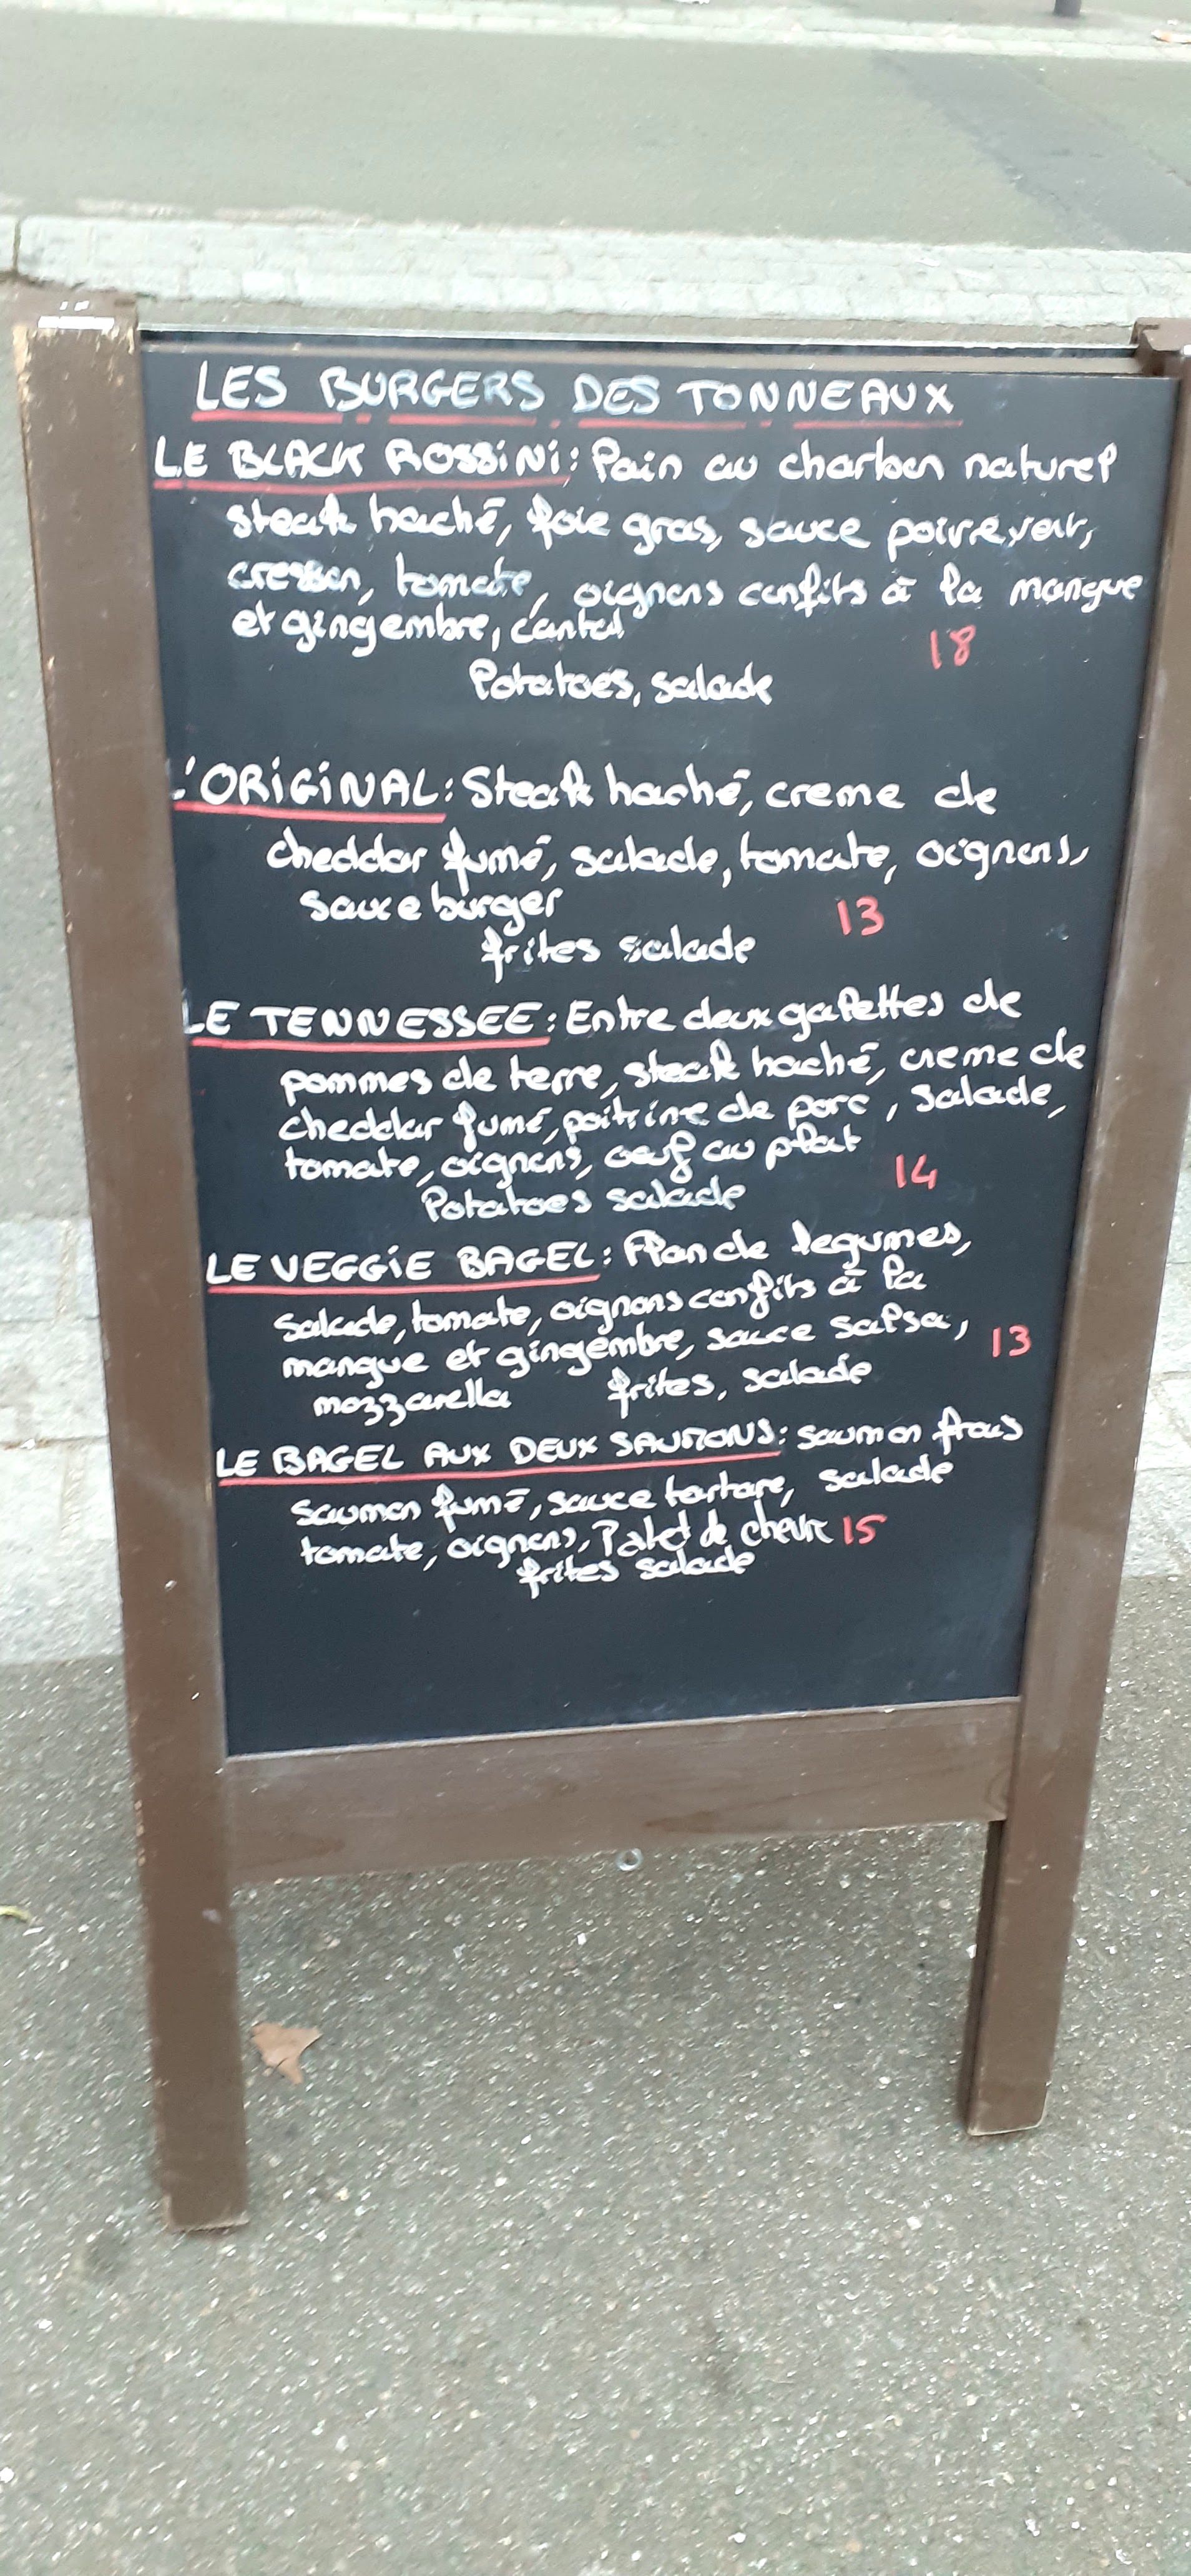 LES BURGERS DES TONNEAUX
LE BLACK ROSSiNi: Pain au charbon naturel
steak haché, foie gras, sauce poivre vert,
cresson, tomate, oignons confits à la mangue
et gingembre, cantal
18
Potatoes, salade
L'ORiGiNAL: Steak haché, creme de
cheddar fumé, salade, tomate, oignons,
sauce burger
13
frites salade
LE TENNESSEE: Entre deux galettes de
pommes de terre, steak haché, creme de
cheddar fumé, poitrine de porc, salade,
tomate, oignons, oeuf au plat
14
Potatoes salade
LE VEGGiE BAGEL: Flan de legumes,
salade, tomate, oignons confits à la
mangue et gingembre, sauce salsa, 13
mozzarella frites, salade
LE BAGEL AUX DEUX SAUMONS: saumon frais
saumon fumé, sauce tartare, salade
tomate, oignons, Palet de chevre 15
frites salade